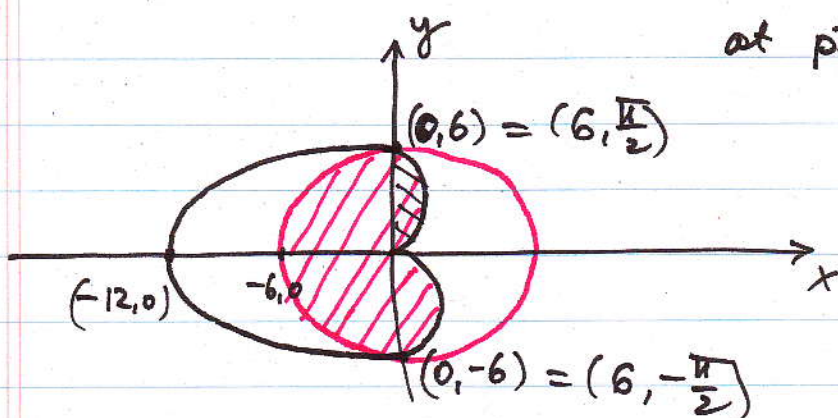 y
at
(0,6) = (6, π/2)
(-12,0)
-6,0
x
(0,-6) = (6, -π/2)